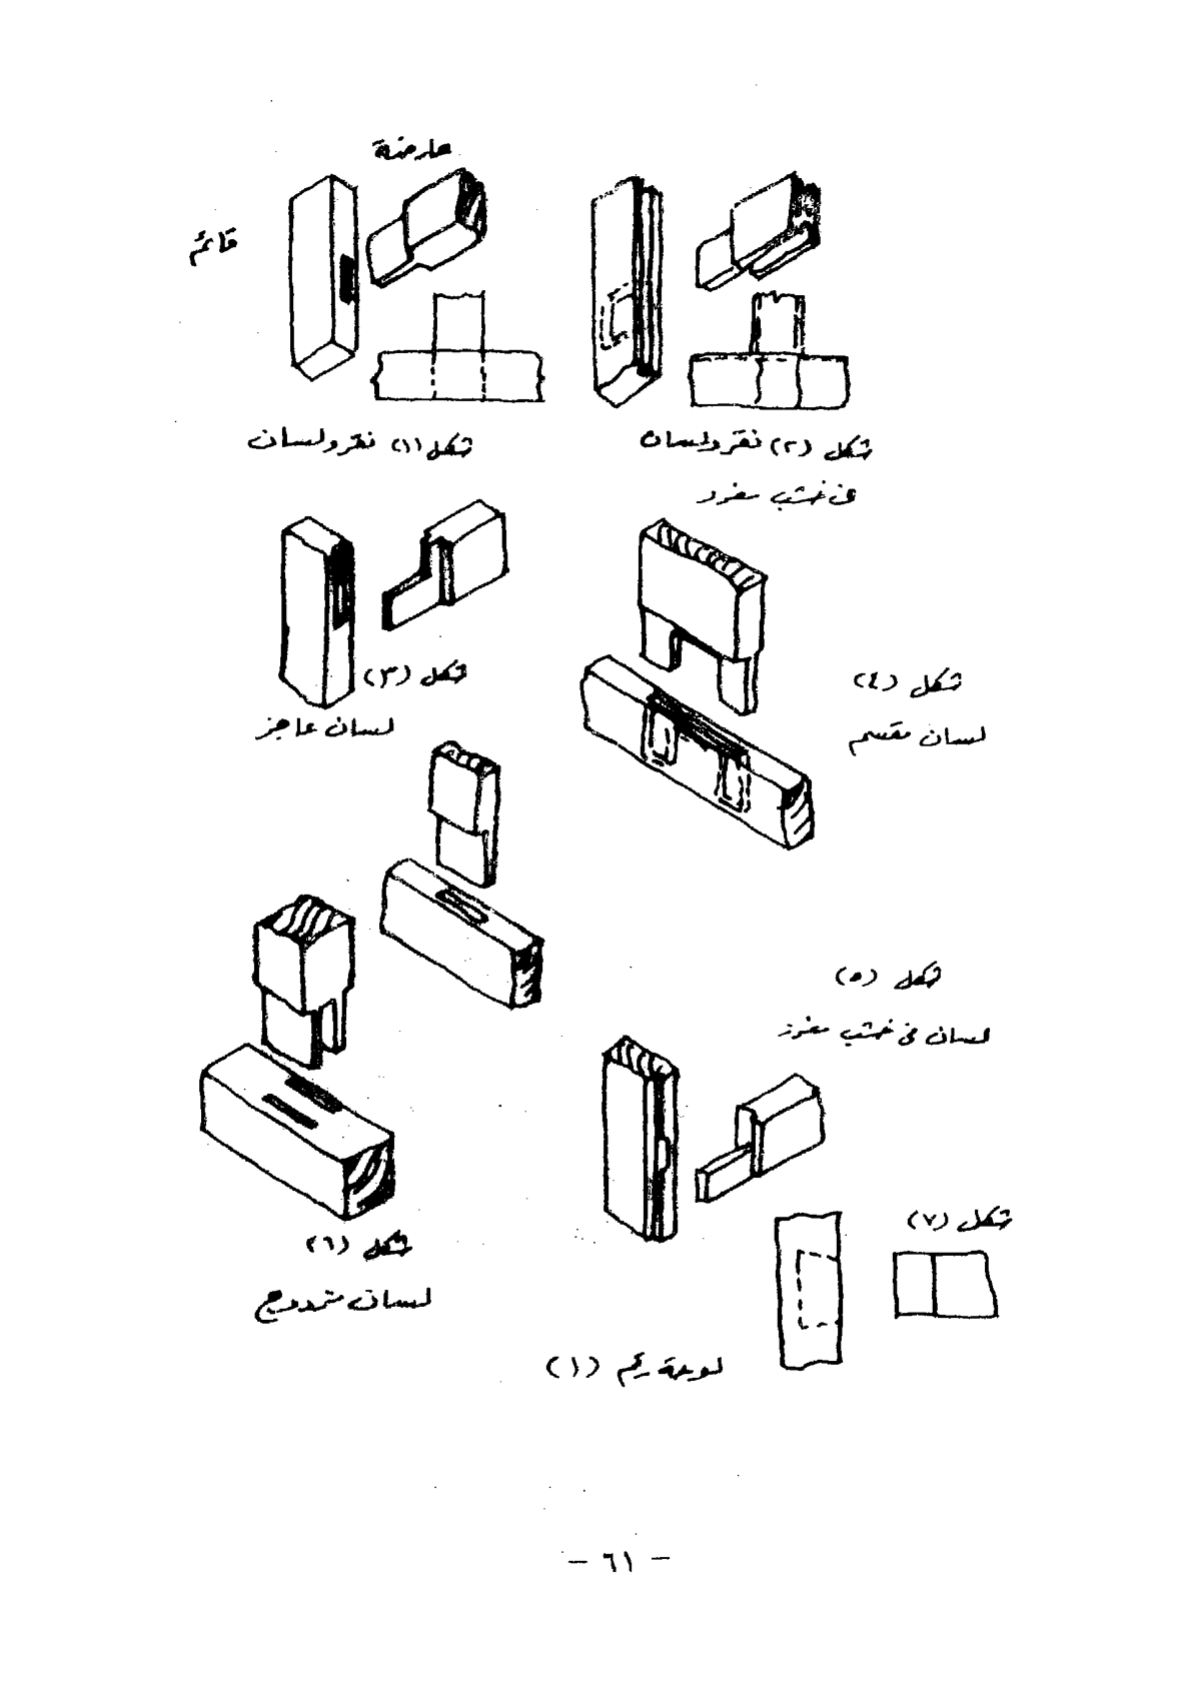 عارضة
قائم
شكل (١) نقر ولسان
شكل (٢) نقر ولسان
فى خشب مفرد
شكل (٣)
لسان عاجز
شكل (٤)
لسان مقسم
شكل (٥)
لسان فى خشب مفرز
شكل (٦)
لسان مزدوج
شكل (٧)
لوحة رقم (١)
- ٦١ -